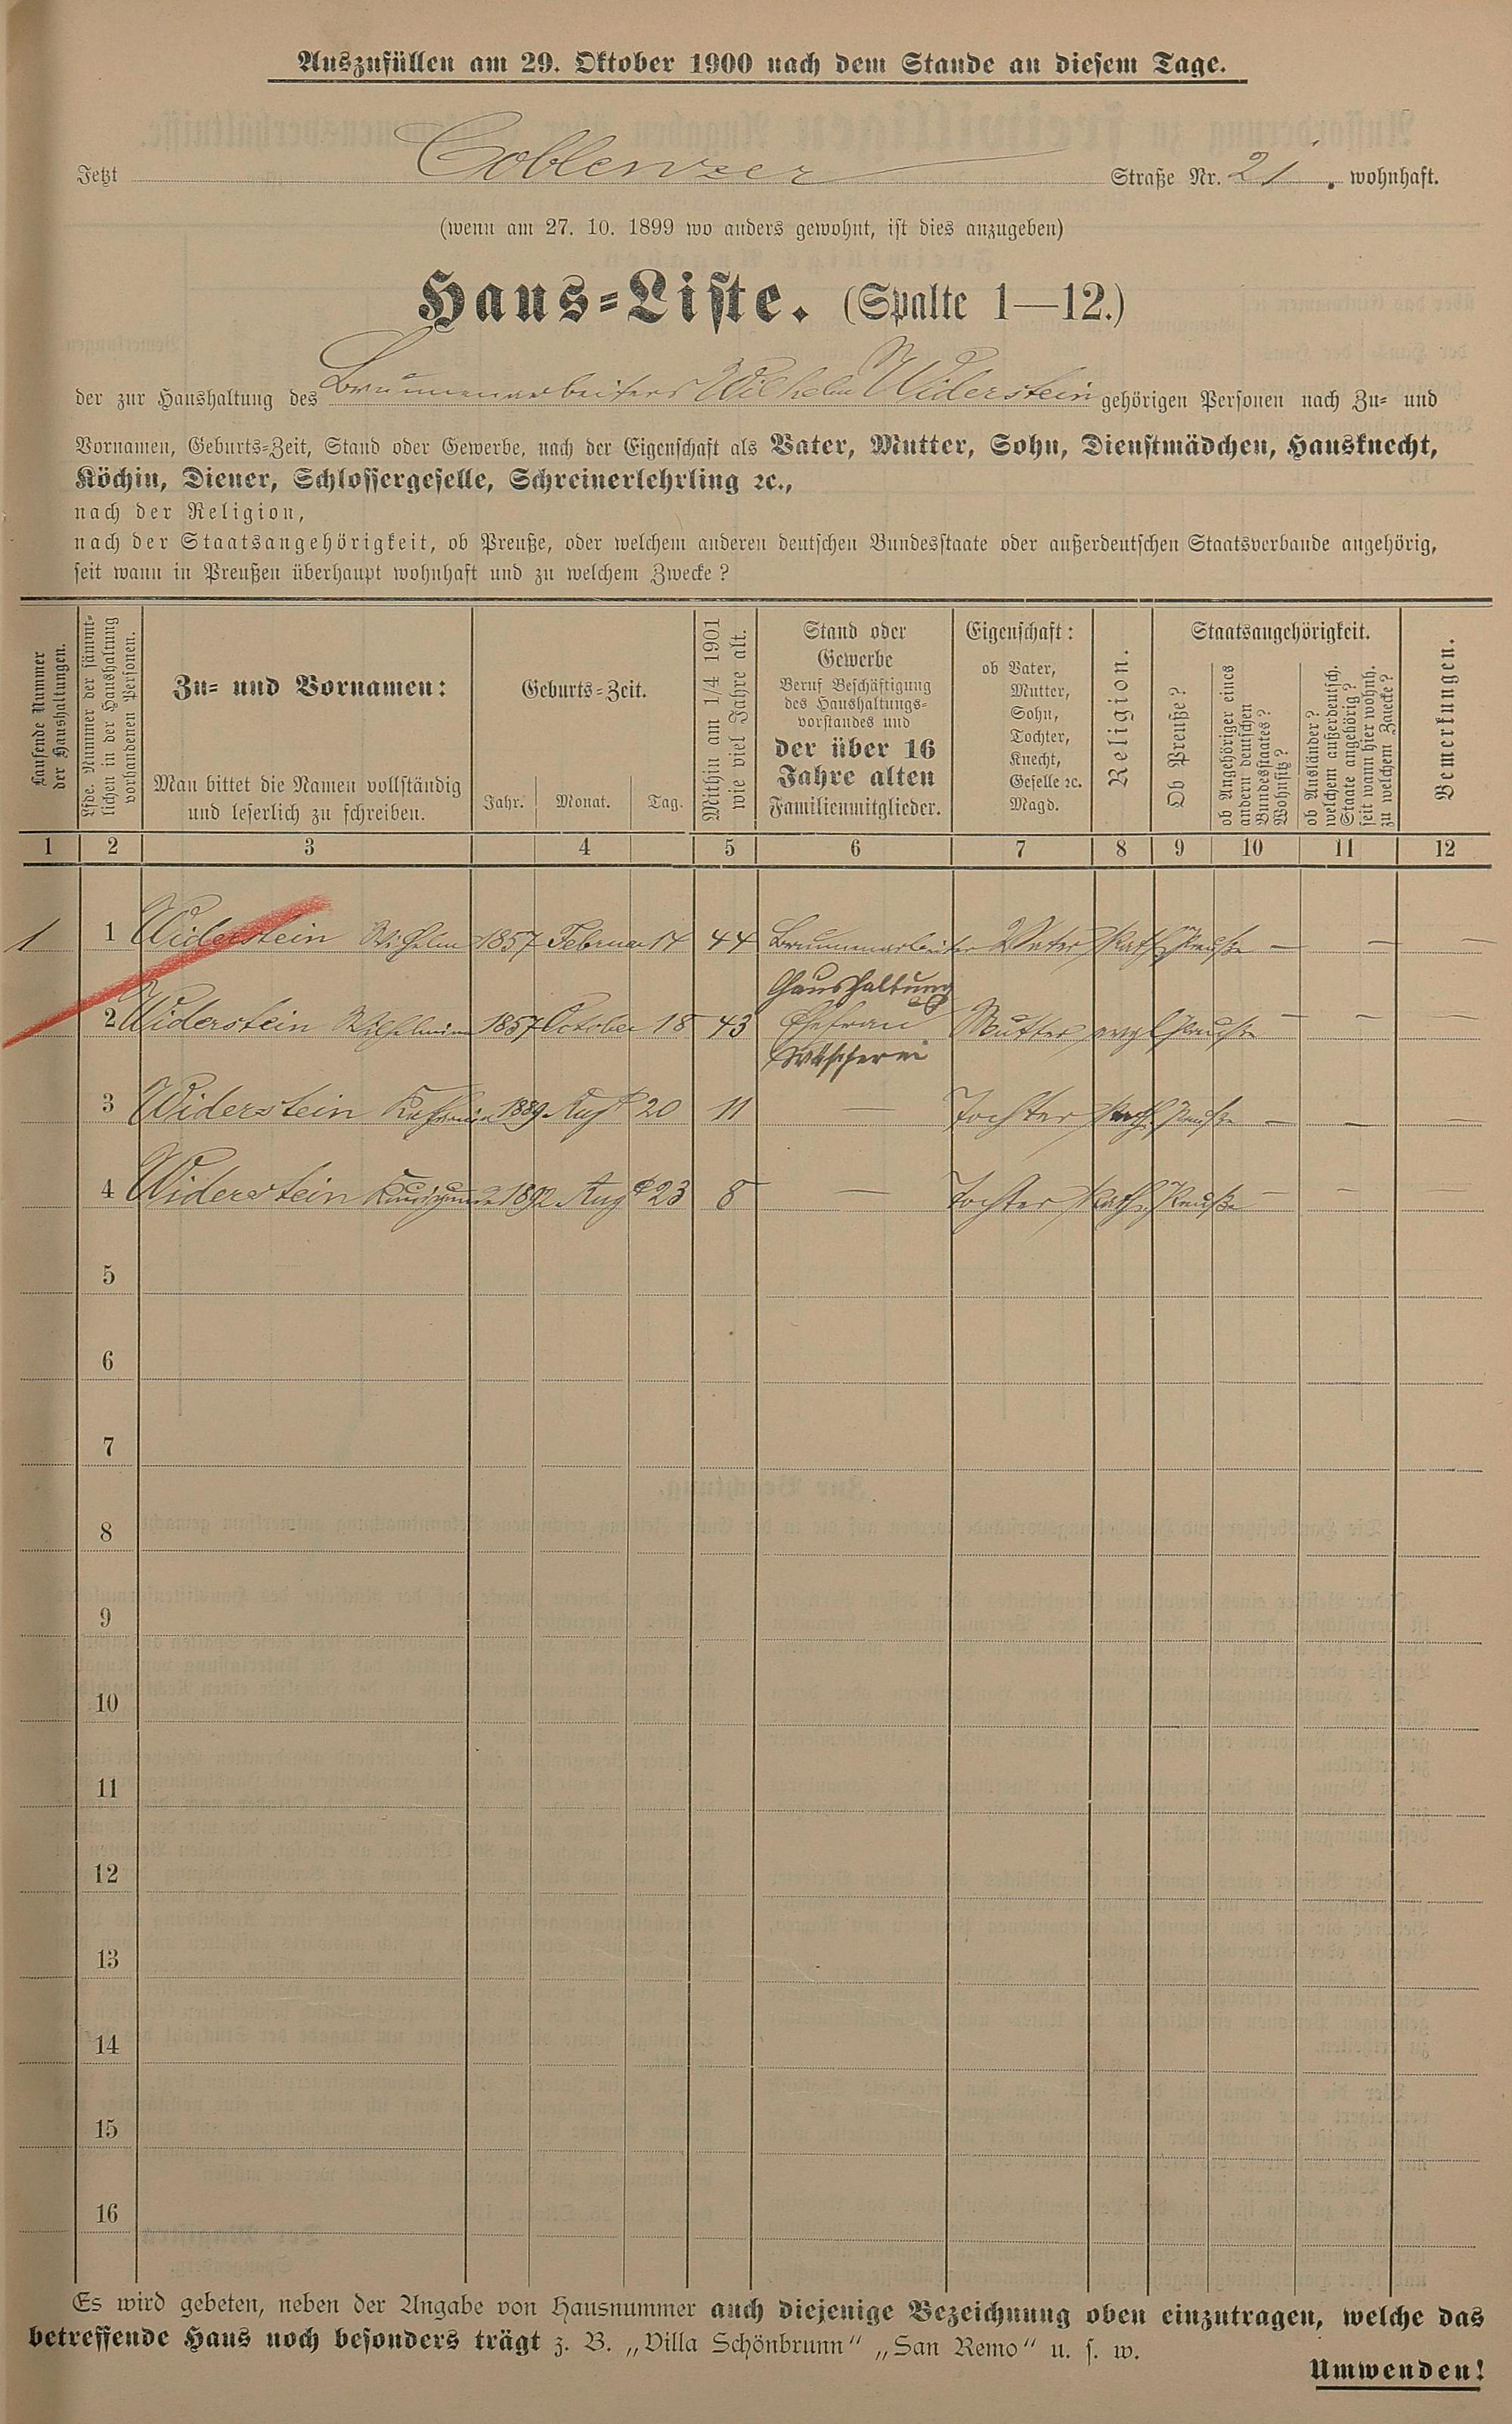 Auszufüllen am 29. Oktober 1900 nach dem Stande an diesem Tage.
Jetzt Coblenzer Straße Nr. 21. wohnhaft.
(wenn am 27. 10. 1899 wo anders gewohnt, ist dies anzugeben)
Haus-Liste. (Spalte 1—12.)
der zur Haushaltung des Brunnenarbeiters Wilhelm Widerstein gehörigen Personen nach Zu- und
Vornamen, Geburts-Zeit, Stand oder Gewerbe, nach der Eigenschaft als Vater, Mutter, Sohn, Dienstmädchen, Hausknecht,
Köchin, Diener, Schlossergeselle, Schreinerlehrling ꝛc.,
nach der Religion,
nach der Staatsangehörigkeit, ob Preuße, oder welchem anderen deutschen Bundesstaate oder außerdeutschen Staatsverbande angehörig,
seit wann in Preußen überhaupt wohnhaft und zu welchem Zwecke?
Laufende Nummer
der Haushaltungen.
Lfde. Nummer der sämmt-
lichen in der Haushaltung
vorhandenen Personen.
Zu- und Vornamen:
Man bittet die Namen vollständig
und leserlich zu schreiben.
Geburts-Zeit.
Jahr. Monat. Tag.
Mithin am 1/4 1901
wie viel Jahre alt.
Stand oder
Gewerbe
Beruf Beschäftigung
des Haushaltungs-
vorstandes und
der über 16
Jahre alten
Familienmitglieder.
Eigenschaft:
ob Vater,
Mutter,
Sohn,
Tochter,
Knecht,
Geselle ꝛc.
Magd.
Religion.
Staatsangehörigkeit.
Ob Preuße?
ob Angehöriger eines
andern deutschen
Bundesstaates?
Wohnsitz?
ob Ausländer?
welchem außerdeutsch.
Staate angehörig?
seit wann hier wohnh.
zu welchem Zwecke?
Bemerkungen.
1 2 3 4 5 6 7 8 9 10 11 12
1 1 Widerstein Wilhelm 1857 Februar 17 44 Brunnenarbeiter Vater Kath Preuße — — —
Haushaltung
2 Widerstein Wilhelmine 1857 October 18 43 Ehefrau Mutter evgl Preuße — — —
Wäscherei
3 Widerstein 1889 Augt 20 11 — Tochter Kath. Preuße — — —
4 Widerstein Kunigunde 1892 Augt 23 8 — Tochter Kath. Preuße — —
5
6
7
8
9
10
11
12
13
14
15
16
Es wird gebeten, neben der Angabe von Hausnummer auch diejenige Bezeichnung oben einzutragen, welche das
betreffende Haus noch besonders trägt z. B. „Villa Schönbrunn“ „San Remo“ u. s. w.
Umwenden!